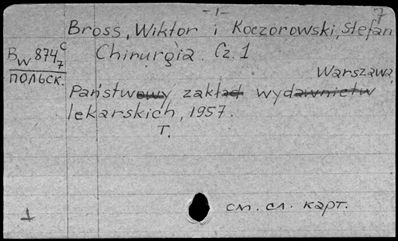 -1-
7
Bross, Wiktor i Koczorowski, Stefan
Bw 874 c/7
ПОЛЬСК.
Chirurgia. Cz. 1
Warszawa,
Państwowy zakład wydawnictw
lekarskich, 1957.
T.
1
см. сл. карт.